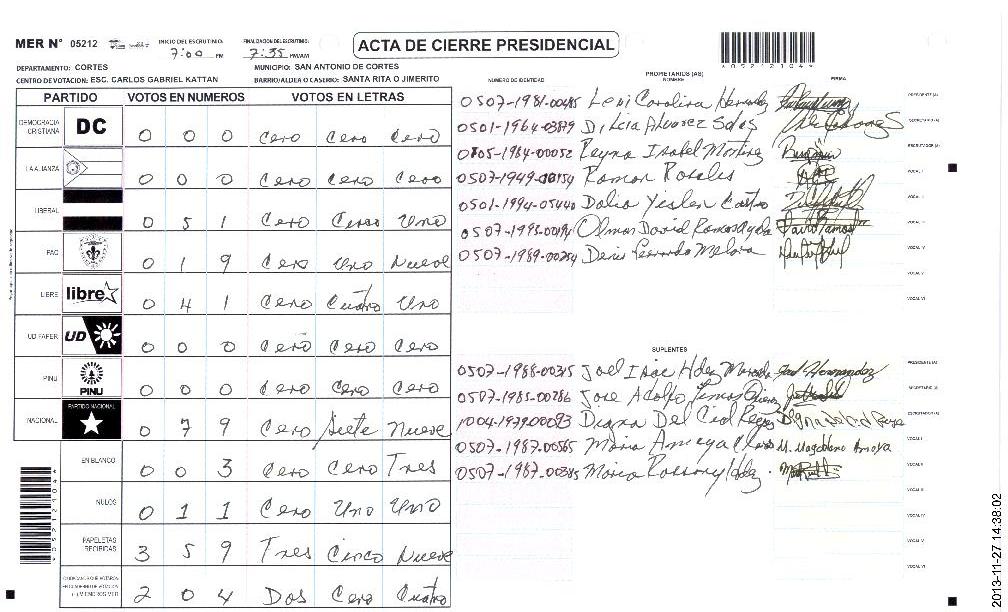 MER N° 05212 INICIO DEL ESCRUTINIO: 7:00 PM FINALIZACION ESCRUTINIO: 7:35 PM/AM ACTA DE CIERRE PRESIDENCIAL *05212104*
DEPARTAMENTO: CORTES MUNICIPIO: SAN ANTONIO DE CORTES
CENTRO DE VOTACION: ESC. CARLOS GABRIEL KATTAN BARRIO/ALDEA O CASERIO: SANTA RITA O JIMERITO
PARTIDO VOTOS EN NUMEROS VOTOS EN LETRAS
DEMOCRACIA CRISTIANA DC 0 0 0 Cero Cero Cero
LA ALIANZA 0 0 0 Cero Cero Cero
LIBERAL 0 5 1 Cero Cinco Uno
PAC 0 1 9 Cero Uno Nueve
LIBRE libre 0 4 1 Cero Cuatro Uno
UD FAPER UD 0 0 0 Cero Cero Cero
PINU PINU 0 0 0 Cero Cero Cero
NACIONAL PARTIDO NACIONAL 0 7 9 Cero Siete Nueve
EN BLANCO 0 0 3 Cero Cero Tres
NULOS 0 1 1 Cero Uno Uno
PAPELETAS RECIBIDAS 3 5 9 Tres Cinco Nueve
2 0 4 Dos Cero Cuatro
NUMERO DE IDENTIDAD PROPIETARIOS (AS) NOMBRE FIRMA
0507-1981-00485 Leni Carolina PRESIDENTE (A)
0501-1964-03879 Dilcia Alvarez Salas SECRETARIO (A)
-1984-00052 Reyna Isabel Martinez ESCRUTADOR (A)
0507-1949- Ramon Rosales VOCAL I
0501-1994-05440 Dalia Yeslen Castro VOCAL II
0507-1993- Olman David VOCAL III
0507-1989- Denis VOCAL IV
VOCAL V
VOCAL VI
SUPLENTES
0507-1988-00315 Joel Isac Hdez Hernandez PRESIDENTE (A)
0507-1985-00286 Jose Adolfo SECRETARIO (A)
1004-1979-00093 Digna Del Cid Reyes ESCRUTADOR (A)
0507-1987-00565 Maria Amaya M. Magdalena Amaya VOCAL I
0507-1987-00385 Hdez VOCAL II
VOCAL III
VOCAL IV
VOCAL V
VOCAL VI
*05212104*
2013-11-27 14:38:02